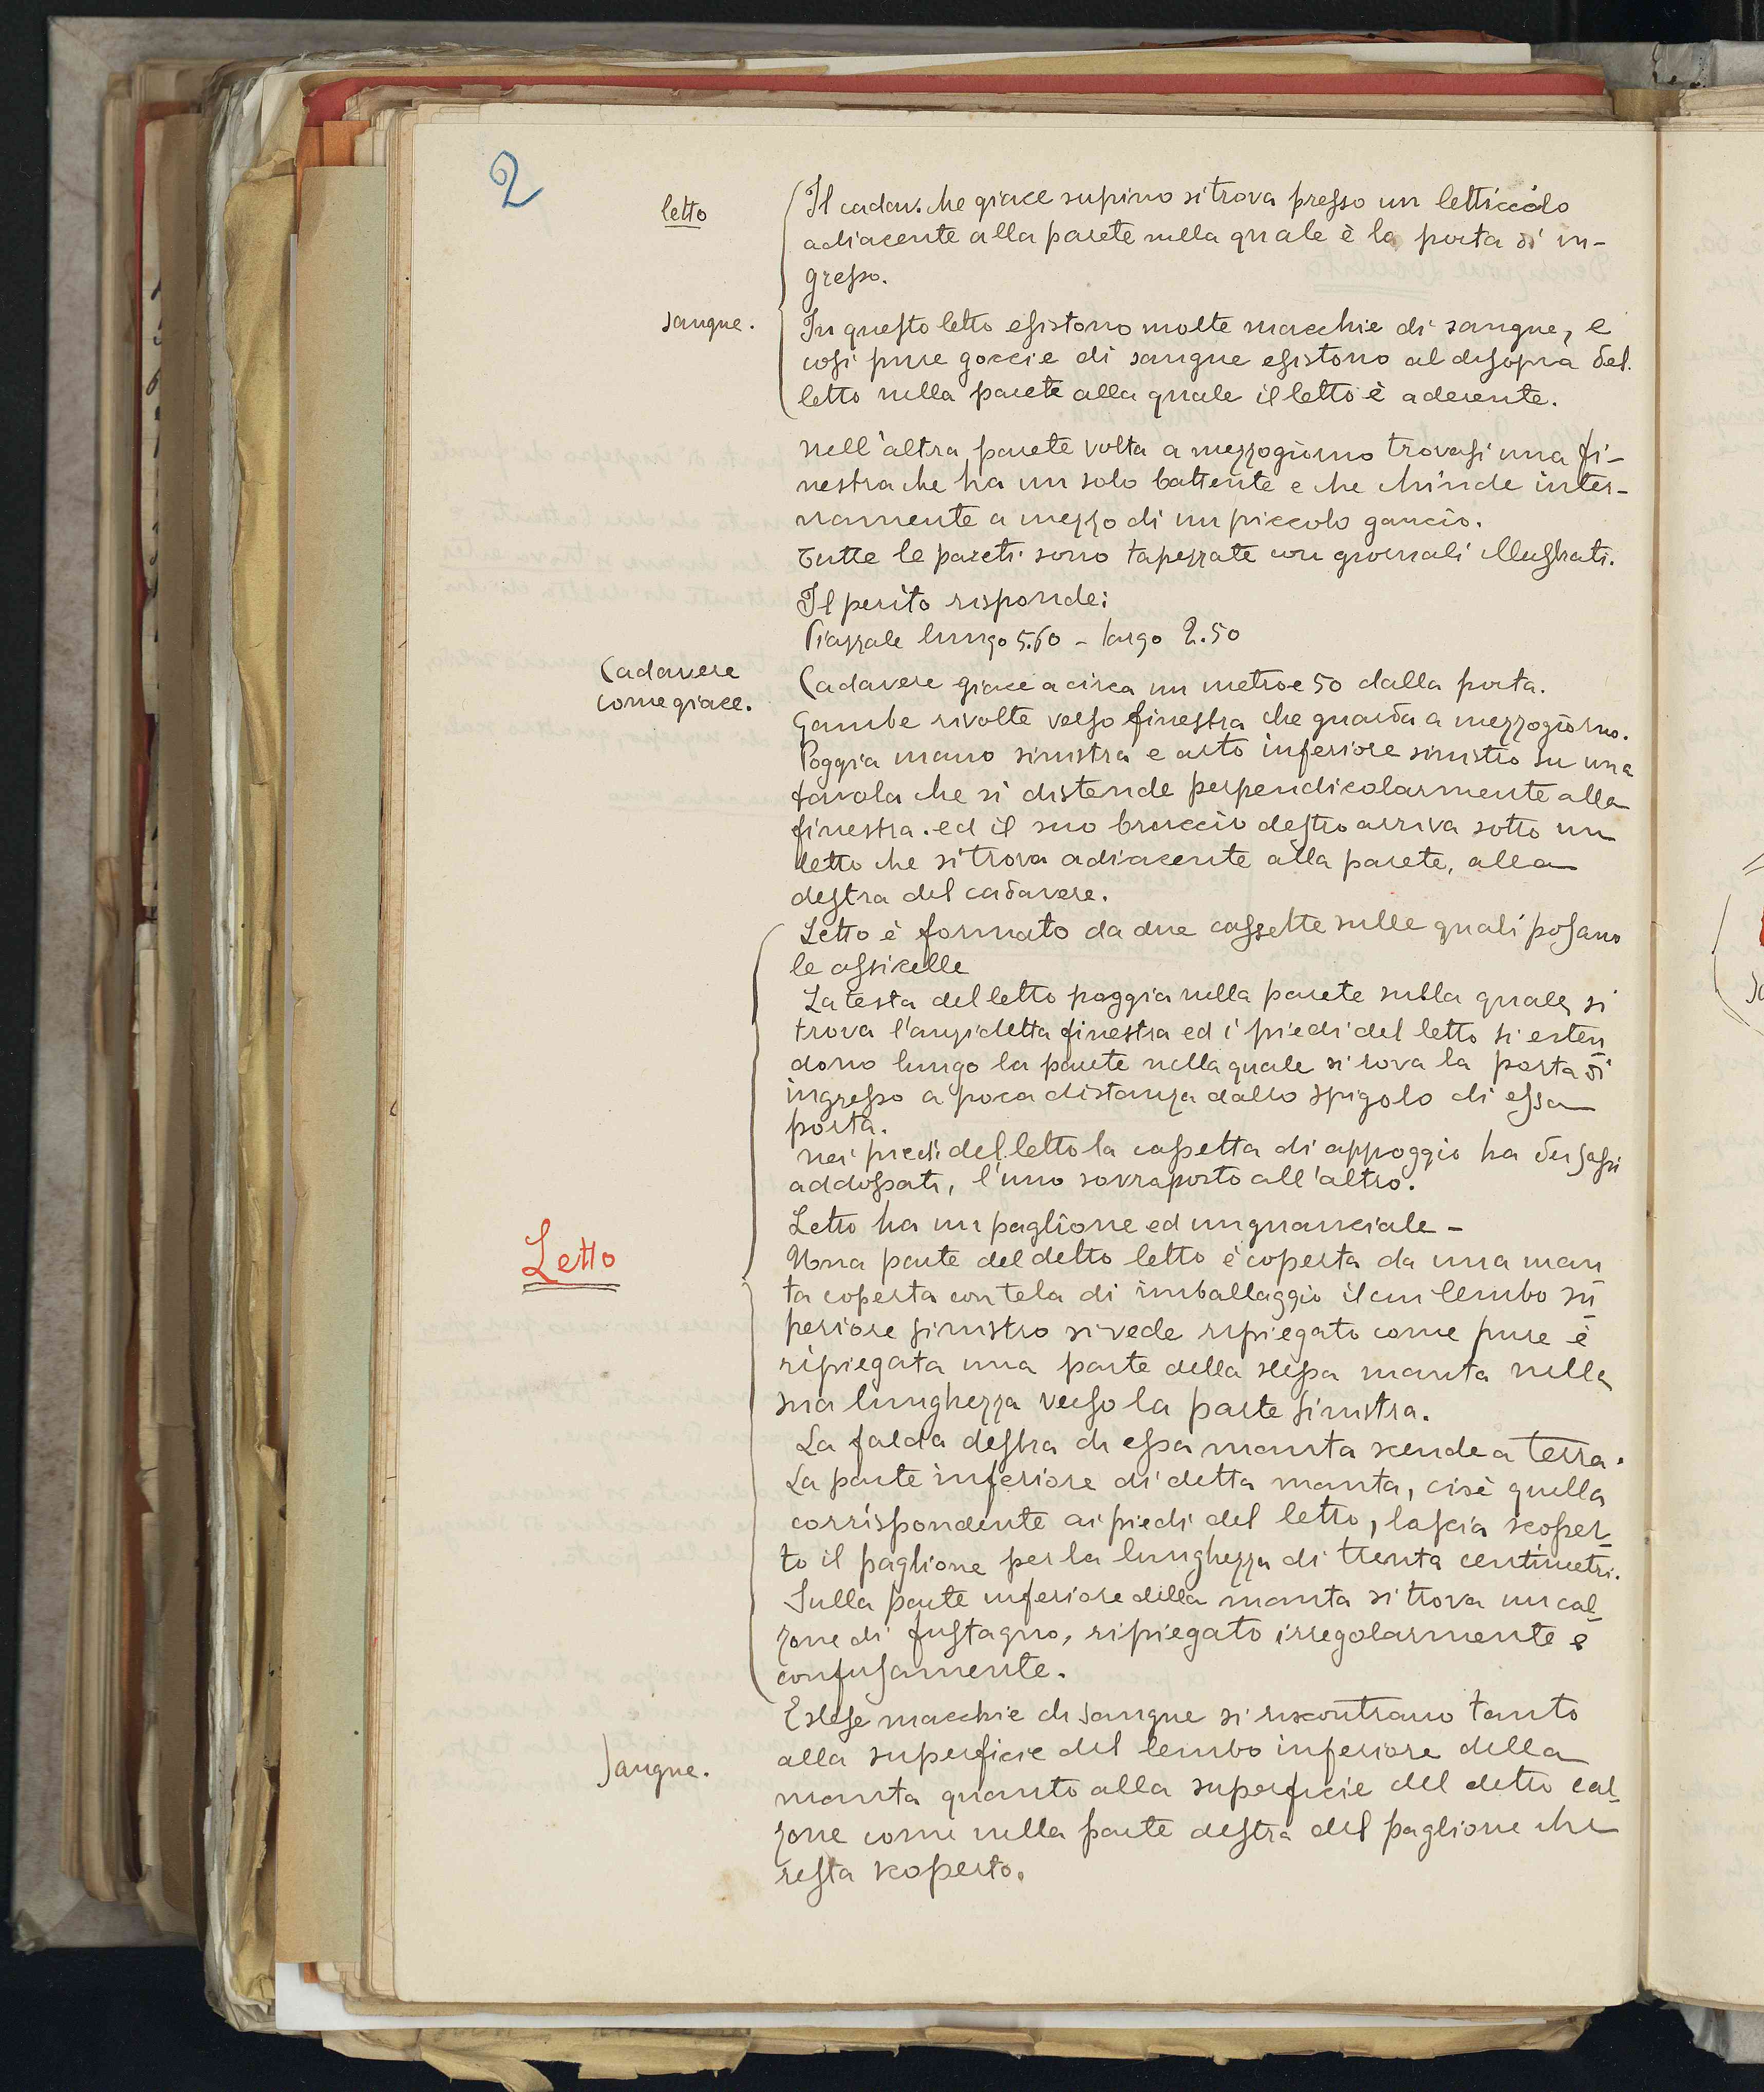 2
letto
Il cadav. che giace supino si trova presso un letticciolo
adiacente alla parete nella quale è la porta di in-
gresso.
sangue.
In questo letto esistono molte macchie di sangue, e
cosi pure goccie di sangue esistono al disopra del
letto nella parete alla quale il letto è aderente.
nell'altra parete volta a mezzogiorno trovasi una fi-
nestra che ha un solo battente e che chiude inter-
namente a mezzo di un piccolo gancio.
Tutte le pareti sono tapezzate con giornali illustrati.
Il perito risponde:
Piazzale lungo 5.60 - largo 2.50
Cadavere
come giace.
Cadavere giace a circa un metro e 50 dalla porta.
Gambe rivolte verso finestra che guarda a mezzogiorno.
Poggia mano sinistra e arto inferiore sinistro su una
tavola che si distende perpendicolarmente alla
finestra. ed il suo braccio destro arriva sotto un
letto che si trova adiacente alla parete, alla
destra del cadavere.
Letto è formato da due cassette sulle quali posano
le assicelle
La testa del letto poggia nella parete sulla quale si
trova l'anzidetta finestra ed i piedi del letto si esten
dono lungo la parete nella quale si rova la porta di
ingresso a poca distanza dallo spigolo di essa
porta.
nei piedi del letto la cassetta di appoggio ha due sassi
addossati, l'uno sovraposto all'altro.
Letto
Letto ha un paglione ed un guanciale -
Una parte del detto letto è coperta da una man
ta coperta con tela di imballaggio il cui lembo su
periore sinistro si vede ripiegato come pure è
ripiegata una parte della stessa manta nella
sua lunghezza verso la parte sinistra.
La falda destra di essa manta scende a terra.
La parte inferiore di detta manta, cioè quella
corrispondente ai piedi del letto, lascia scoper-
to il paglione per la lunghezza di trenta centimetri.
Sulla parte inferiore della manta si trova un cal-
zone di fustagno, ripiegato irregolarmente e
confusamente.
Sangue.
Estese macchie di sangue si riscontrano tanto
alla superficie del lembo inferiore della
manta quanto alla superficie del detto cal-
zone come nella parte destra del paglione che
resta scoperto.